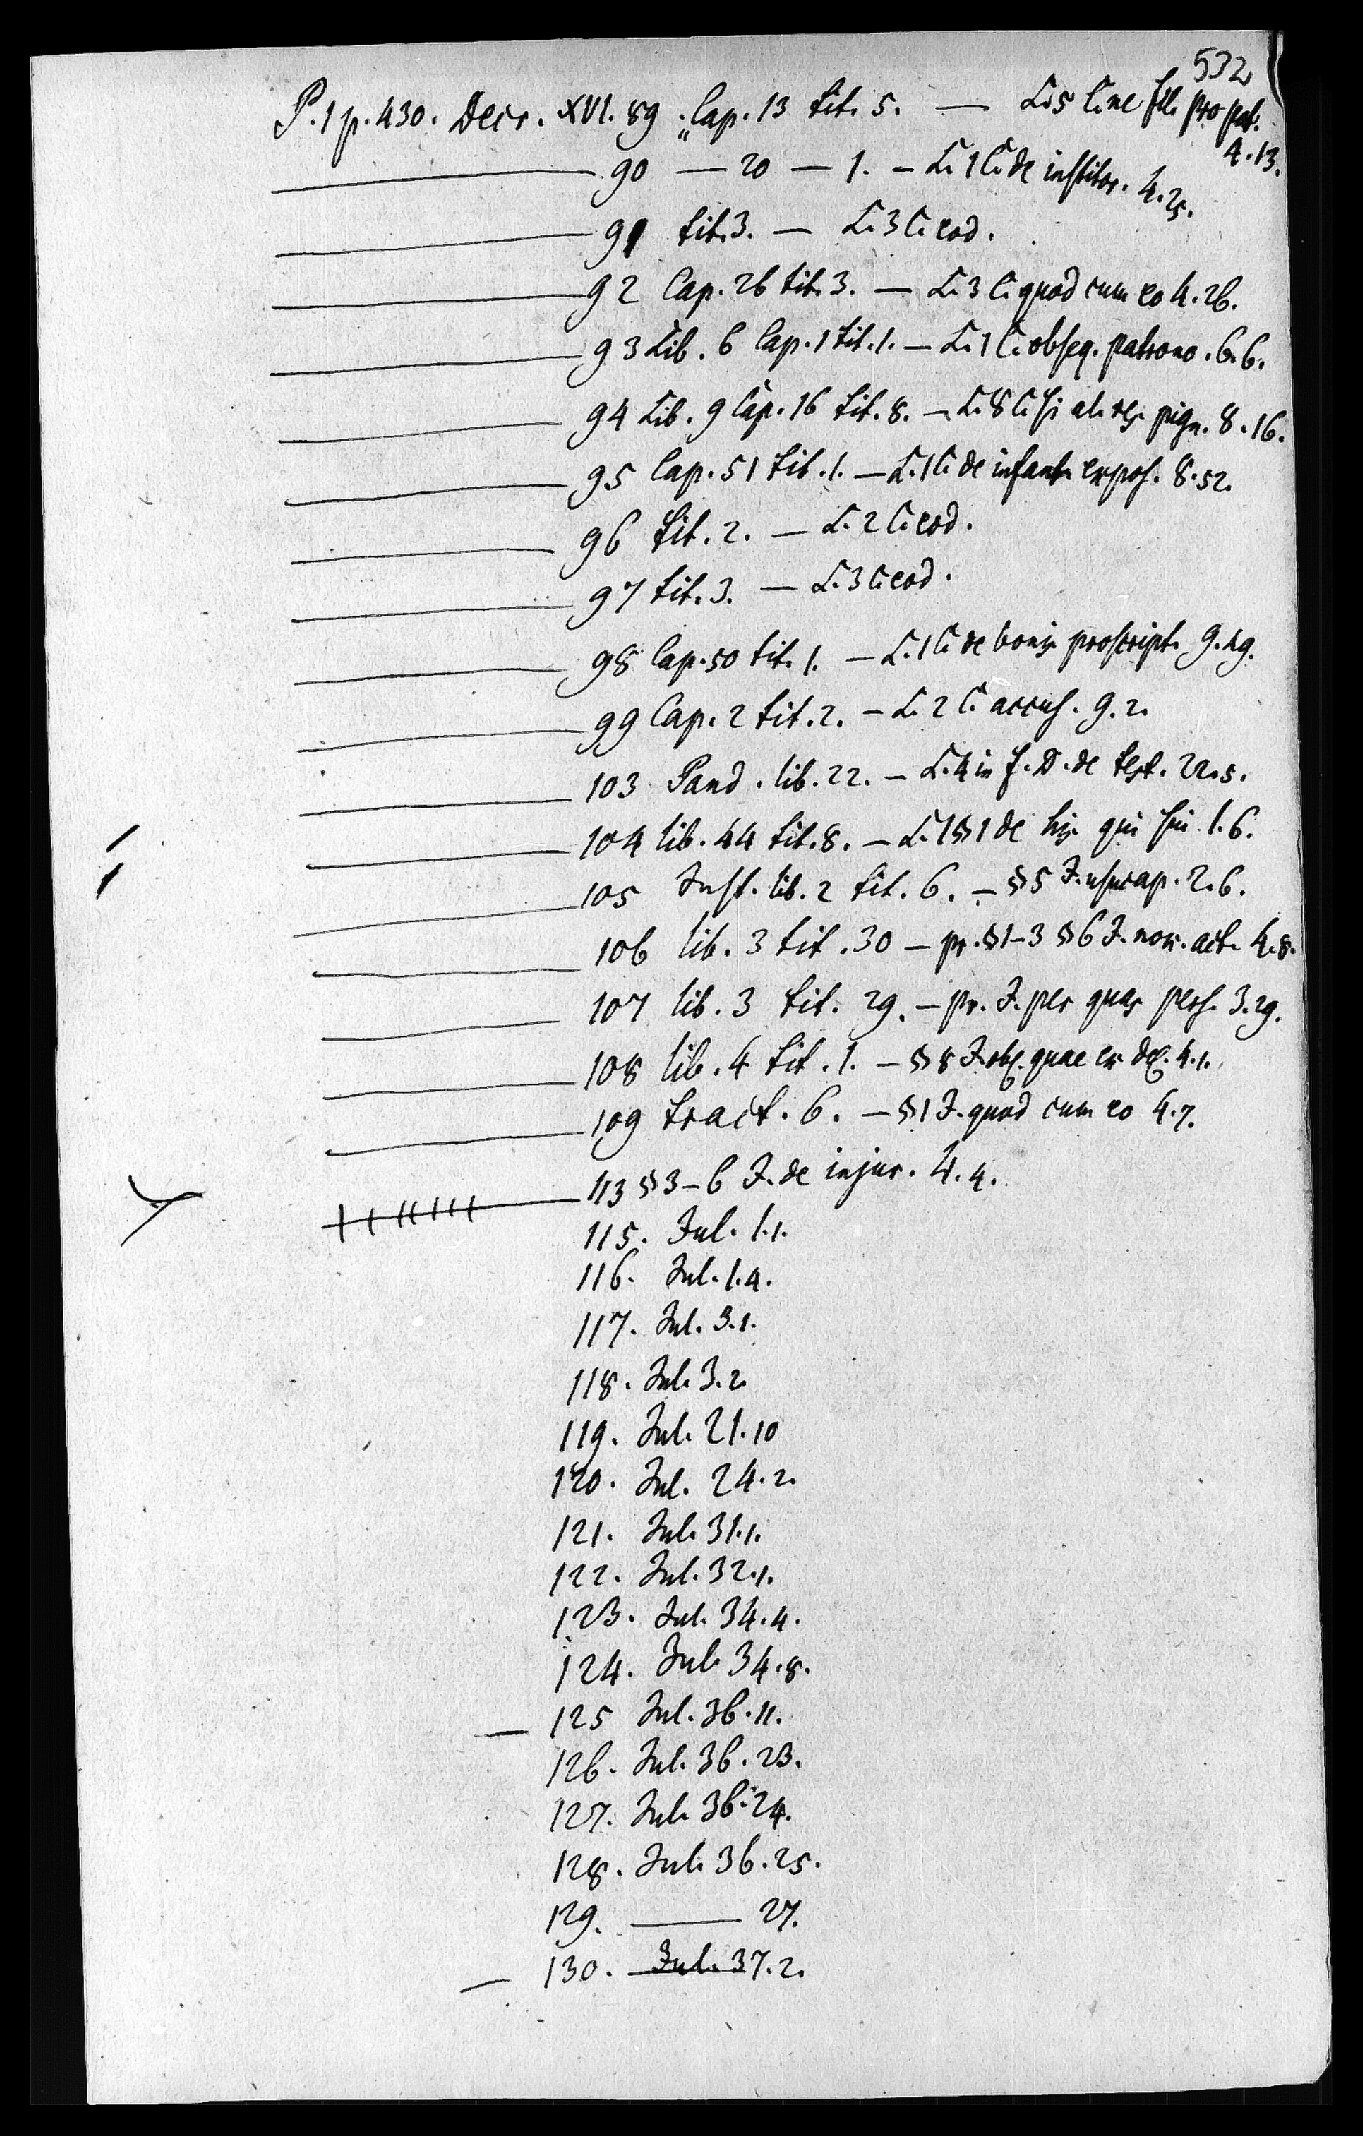 532
P. 1 p. 430. Decr. XVI. 89. „Cap. 13 tit. 5. — L. 5 C. ne fil. pro pat. 4.13.
90 — 20 — 1. — L. 1 C. de institor. 4.25.
91 tit. 3. — L. 3 C. eod.
92 Cap. 26 tit. 3. — L. 3 C. quod cum eo 4.26.
93 Lib. 6 Cap. 1 tit. 1. — L. 1 C. obseq. patrono. 6.6.
94 Lib. 9 Cap. 16 tit. 8. — L. 8 C. si al. res pign. 8.16.
95 Cap. 51 tit. 1. — L. 1 C. de infant. expos. 8.52.
96 tit. 2. — L. 2 C. eod.
97 tit. 3. — L. 3 C. eod.
98 Cap. 50 tit. 1. — L. 1 C. de bonis proscript. 9.49.
99 Cap. 2 tit. 2. — L. 2 C. accus. 9.2.
103 Pand. lib. 22. — L. 4 in f. D. de test. 22.5.
104 lib. 44 tit. 8. — L. 1 § 1 de his qui sui 1.6.
105 Inst. lib. 2 tit. 6. — § 5 I. usucap. 2.6.
106 lib. 3 tit. 30 — pr. § 1–3 § 6 I. nox. act. 4.8.
107 lib. 3 tit. 29. — pr. I. per quas pers. 3.29.
108 lib. 4 tit. 1. — § 8 I. obl. quae ex del. 4.1.
109 tract. 6. — § 1 I. quod cum eo 4.7.
113 § 3–6 I. de injur. 4.4.
115. Jul. 1.1.
116. Jul. 1.4.
117. Jul. 3.1.
118. Jul. 3.2.
119. Jul. 21.10
120. Jul. 24.2.
121. Jul. 31.1.
122. Jul. 32.1.
123. Jul. 34.4.
124. Jul. 34.8.
— 125 Jul. 36.11.
126. Jul. 36.23.
127. Jul. 36.24.
128. Jul. 36.25.
129. — 27.
— 130. Jul. 37.2.